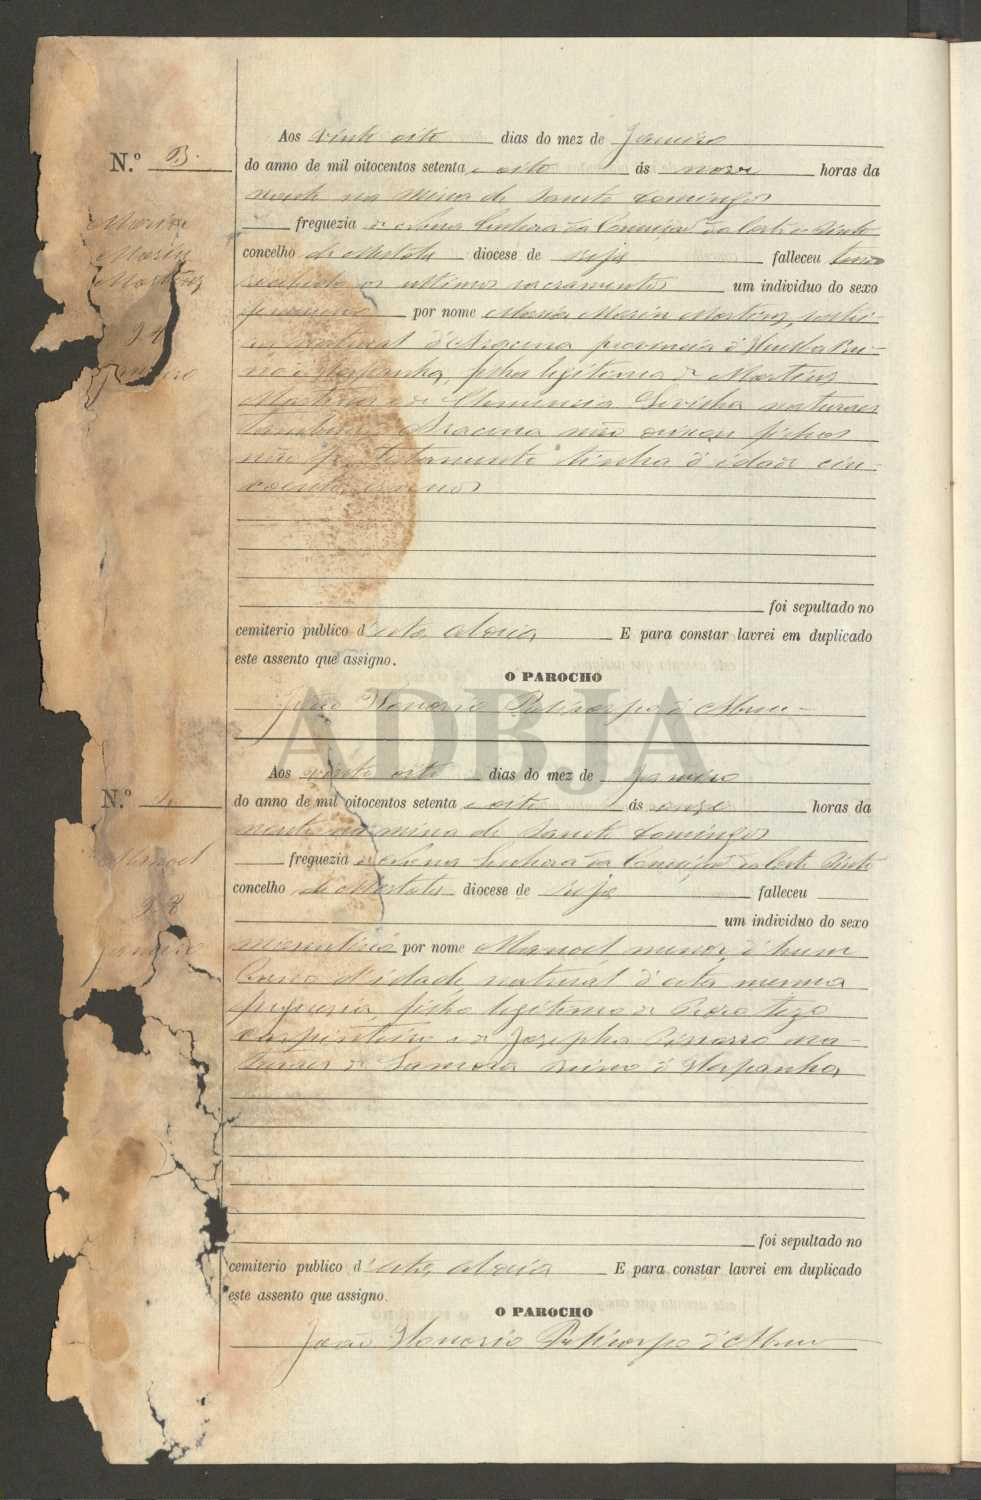 Aos vinte oito dias do mez de Janeiro
N.º 3.
do anno de mil oitocentos setenta e oito ás nove horas da
noute na Mina de Sancto Domingos
Maria
freguezia de Nossa Senhora da Conceição da Corte do Pinto
Maria
concelho de Mertola diocese de Beja falleceu tendo
Martins
recebido os ultimos sacramentos um individuo do sexo
feminino por nome Maria Martins
natural d'Aracena provincia d'Huelva Rei-
Janeiro
no d'Hespanha, filha legitima de Martins
Martins e de naturaes
tambem d'Aracena não deixou filhos
não fez testamento tinha d'idade cin-
coenta annos
foi sepultado no
cemiterio publico d'esta aldeia E para constar lavrei em duplicado
este assento que assigno.
O PAROCHO
João Honorio Policarpo d'
ADBJA
Aos vinte oito dias do mez de Janeiro
N.º
do anno de mil oitocentos setenta e oito ás onze horas da
noute na mina de Sancto Domingos
Manoel
freguezia de Nossa Senhora da Conceição da Corte Pinto
concelho de Mertola diocese de Beja falleceu
um individuo do sexo
masculino por nome Manoel menor d'hum
Janeiro
d'idade, natural d'esta mesma
freguezia, filho legitimo de
carpinteiro e de Josepha na-
turaes de Samora Reino d'Hespanha,
foi sepultado no
cemiterio publico d'esta aldeia E para constar lavrei em duplicado
este assento que assigno.
O PAROCHO
João Honorio Policarpo d'